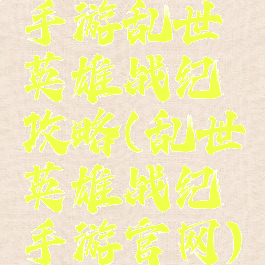 手游乱世
英雄战纪
攻略(乱世
英雄战纪
手游官网)